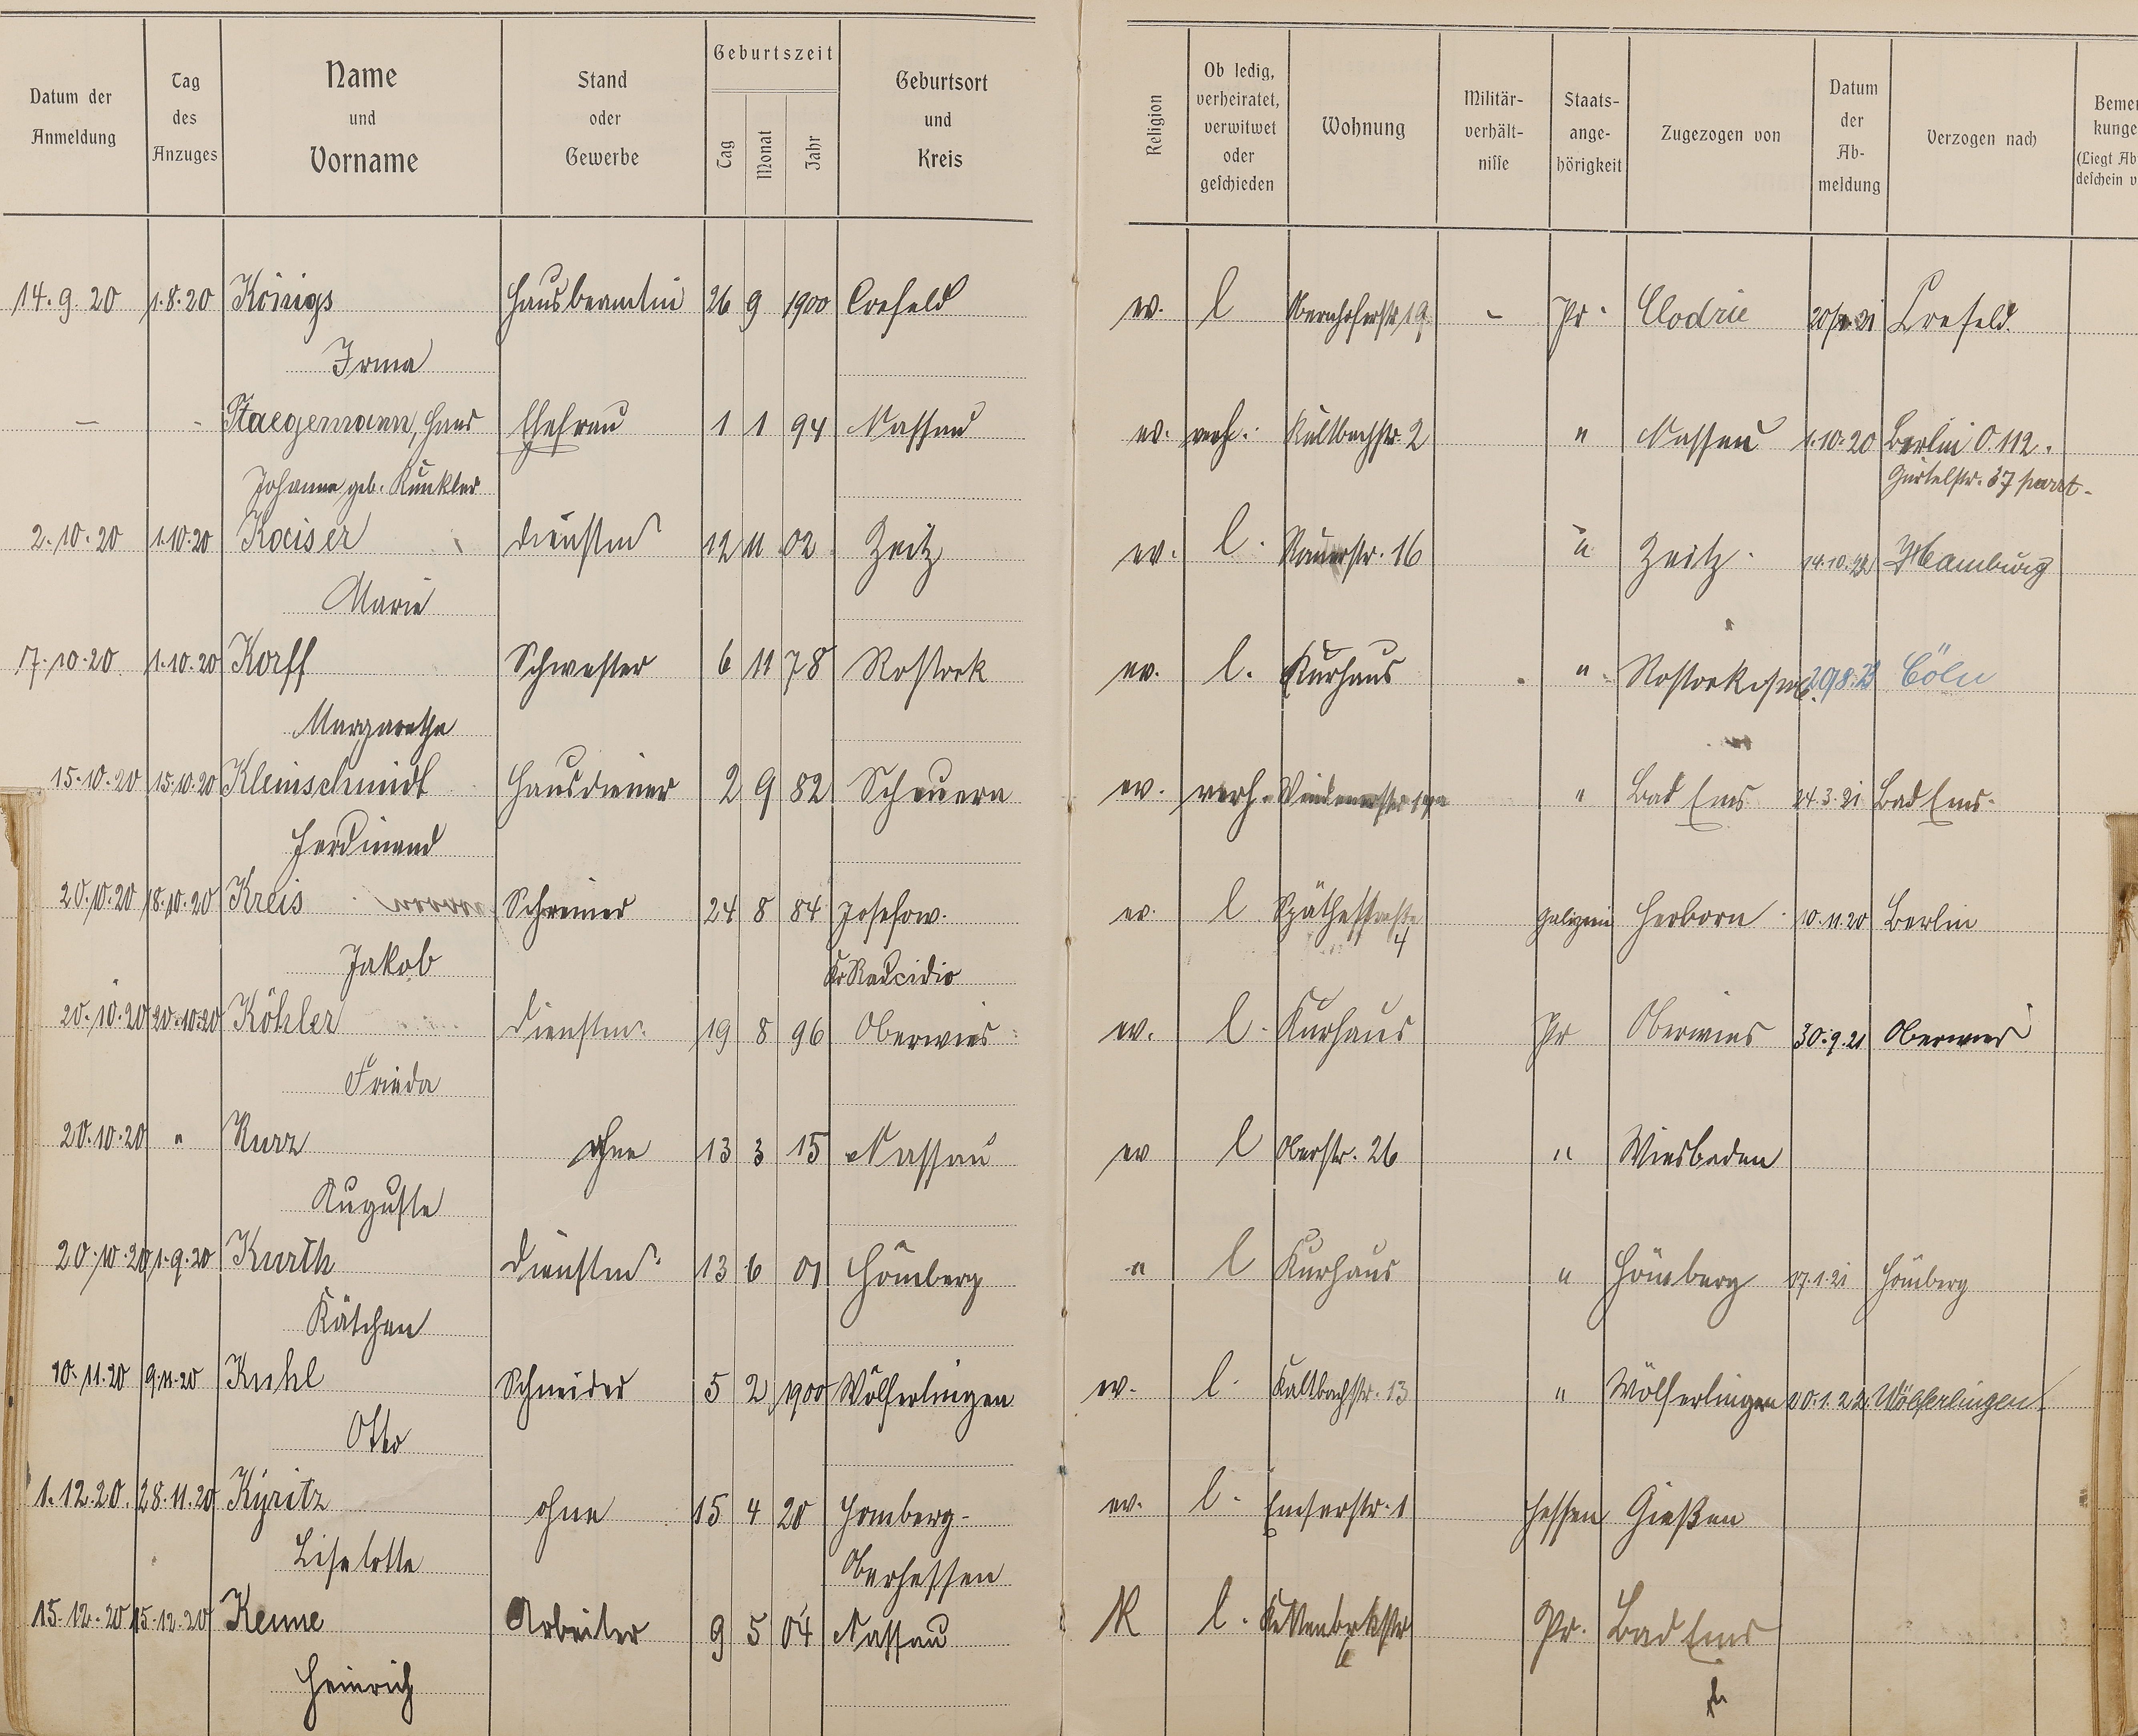 Datum der Anmeldung | Tag des Anzuges | Name und Vorname | Stand oder Gewerbe | Geburtszeit Tag Monat Jahr | Geburtsort und Kreis | Religion | Ob ledig, verheiratet, verwitwet oder geschieden | Wohnung | Militär-verhält-nisse | Staats-ange-hörigkeit | Zugezogen von | Datum der Ab-meldung | Verzogen nach
14.9.20 1.8.20 Königs Hausbeamtin 26 9 1900 Crefeld ev. l 19 - Pr. Clodrie Crefeld.
Irma
— - Staegemann, Hans Ehefrau 1 1 94 Nassau ev. verh. Kaltbachstr. 2 " Nassau 1.10.20 Berlin O. 112.
Johanna geb. Kunkler Gürtelstr. 37 part.
2.10.20 1.10.20 Kaiser Dienstm 12 11 02 Zeitz ev. l. 16 " Zeitz. Hamburg
Marie
17.10.20 1.10.20 Korff Schwester 6 11 78 Rostock ev. l. Kurhaus " Rostock Cöln
Margarethe
15.10.20 15.10.20 Kleinschmidt Hausdiener 2 9 82 Scheuern ev. verh. " Bad Ems 24.3.21 Bad Ems.
Ferdinand
20.10.20 18.10.20 Kreis Schreiner 24 8 84 Josefow. ev. l Späthestraße Galizien Herborn 10.11.20 Berlin
4
Jakob Kr
20.10.20 20.10.20 Köhler Dienstm. 19 8 96 Oberwies ev. l. Kurhaus Pr Oberwies 30.9.21 Oberwies
Frieda
20.10.20 " Kurz ohne 13 3 15 Nassau ev l Oberstr. 26 " Wiesbaden
Auguste
20.10.20 1.9.20 Kurth Dienstm. 13 6 01 Hömberg " l Kurhaus " Hömberg 17.1.21 Hömberg
Kätchen
10.11.20 9.11.20 Kuhl Schneider 5 2 1900 Wölferlingen ev. l. Kaltbachstr. 13 " Wölferlingen 20.1.22 Wölferlingen
Otto
1.12.20. 28.11.20 Kyritz ohne 15 4 20 Homberg- ev. l. Emserstr. 1 Hessen Gießen
Liselotte Oberhessen
15.12.20 15.12.20 Kenne Arbeiter 9 5 04 Nassau K l. Pr. Bad Ems
Heinrich